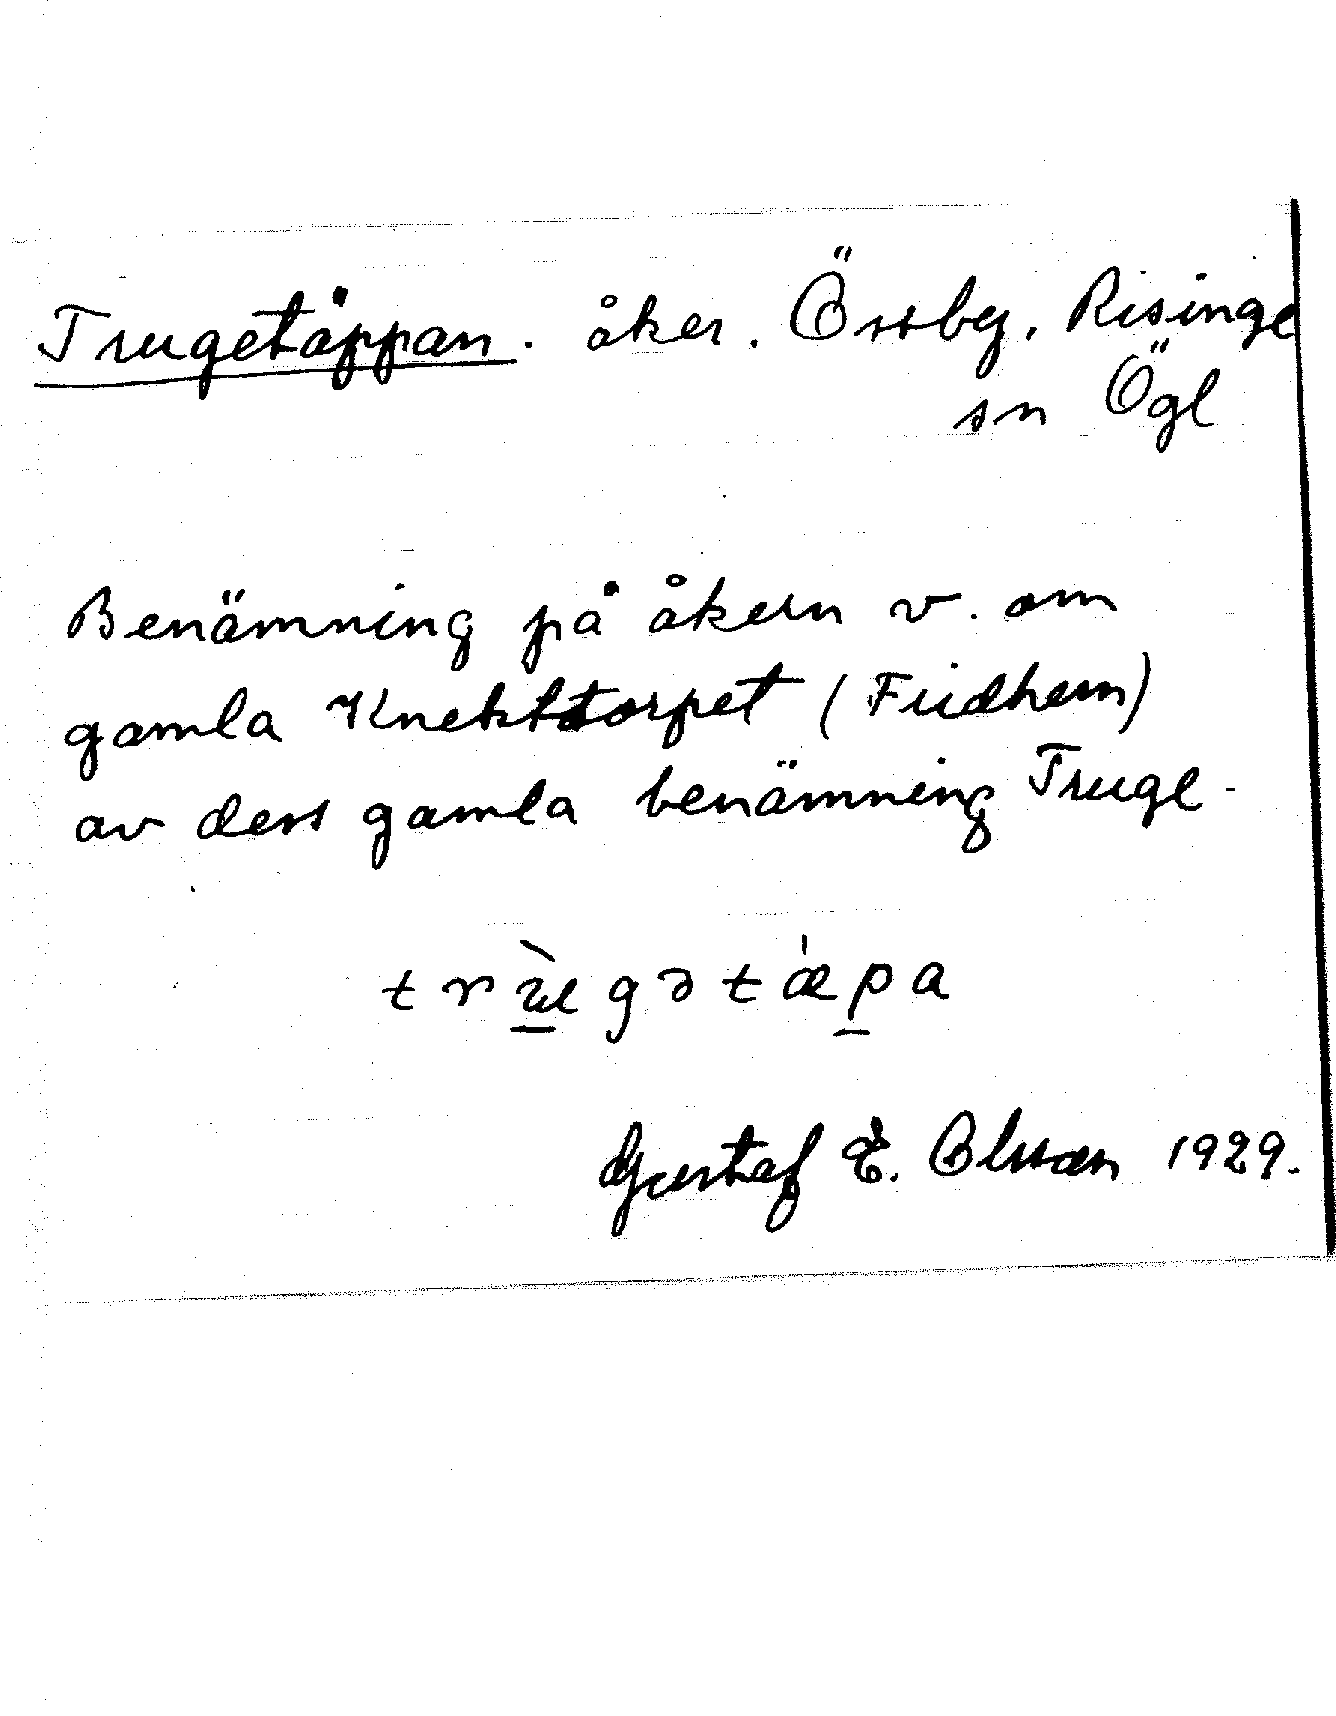 Trugetäppan. åker. Össby, Risinge
sn Ögl
Benämning på åkern v. om
gamla Knekttorpet (Fridhem)
av dess gamla benämning Truge-
Gustaf E. Olsson 1929.